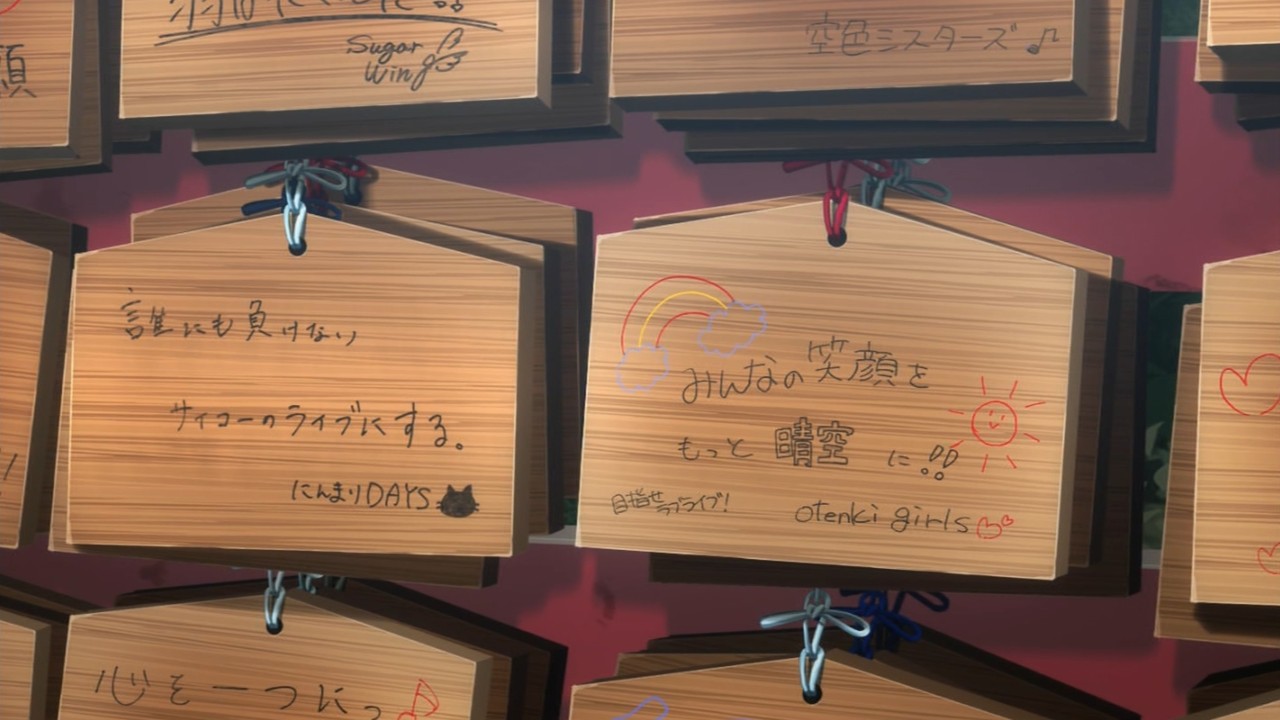 Sugar
Wing
空色ミスターズ♪
願
誰にも負けない
サイコーのライブにする。
にんまりDAYS
みんなの笑顔を
もっと晴空に!!
目指せラブライブ!
otenki girls
心を一つに